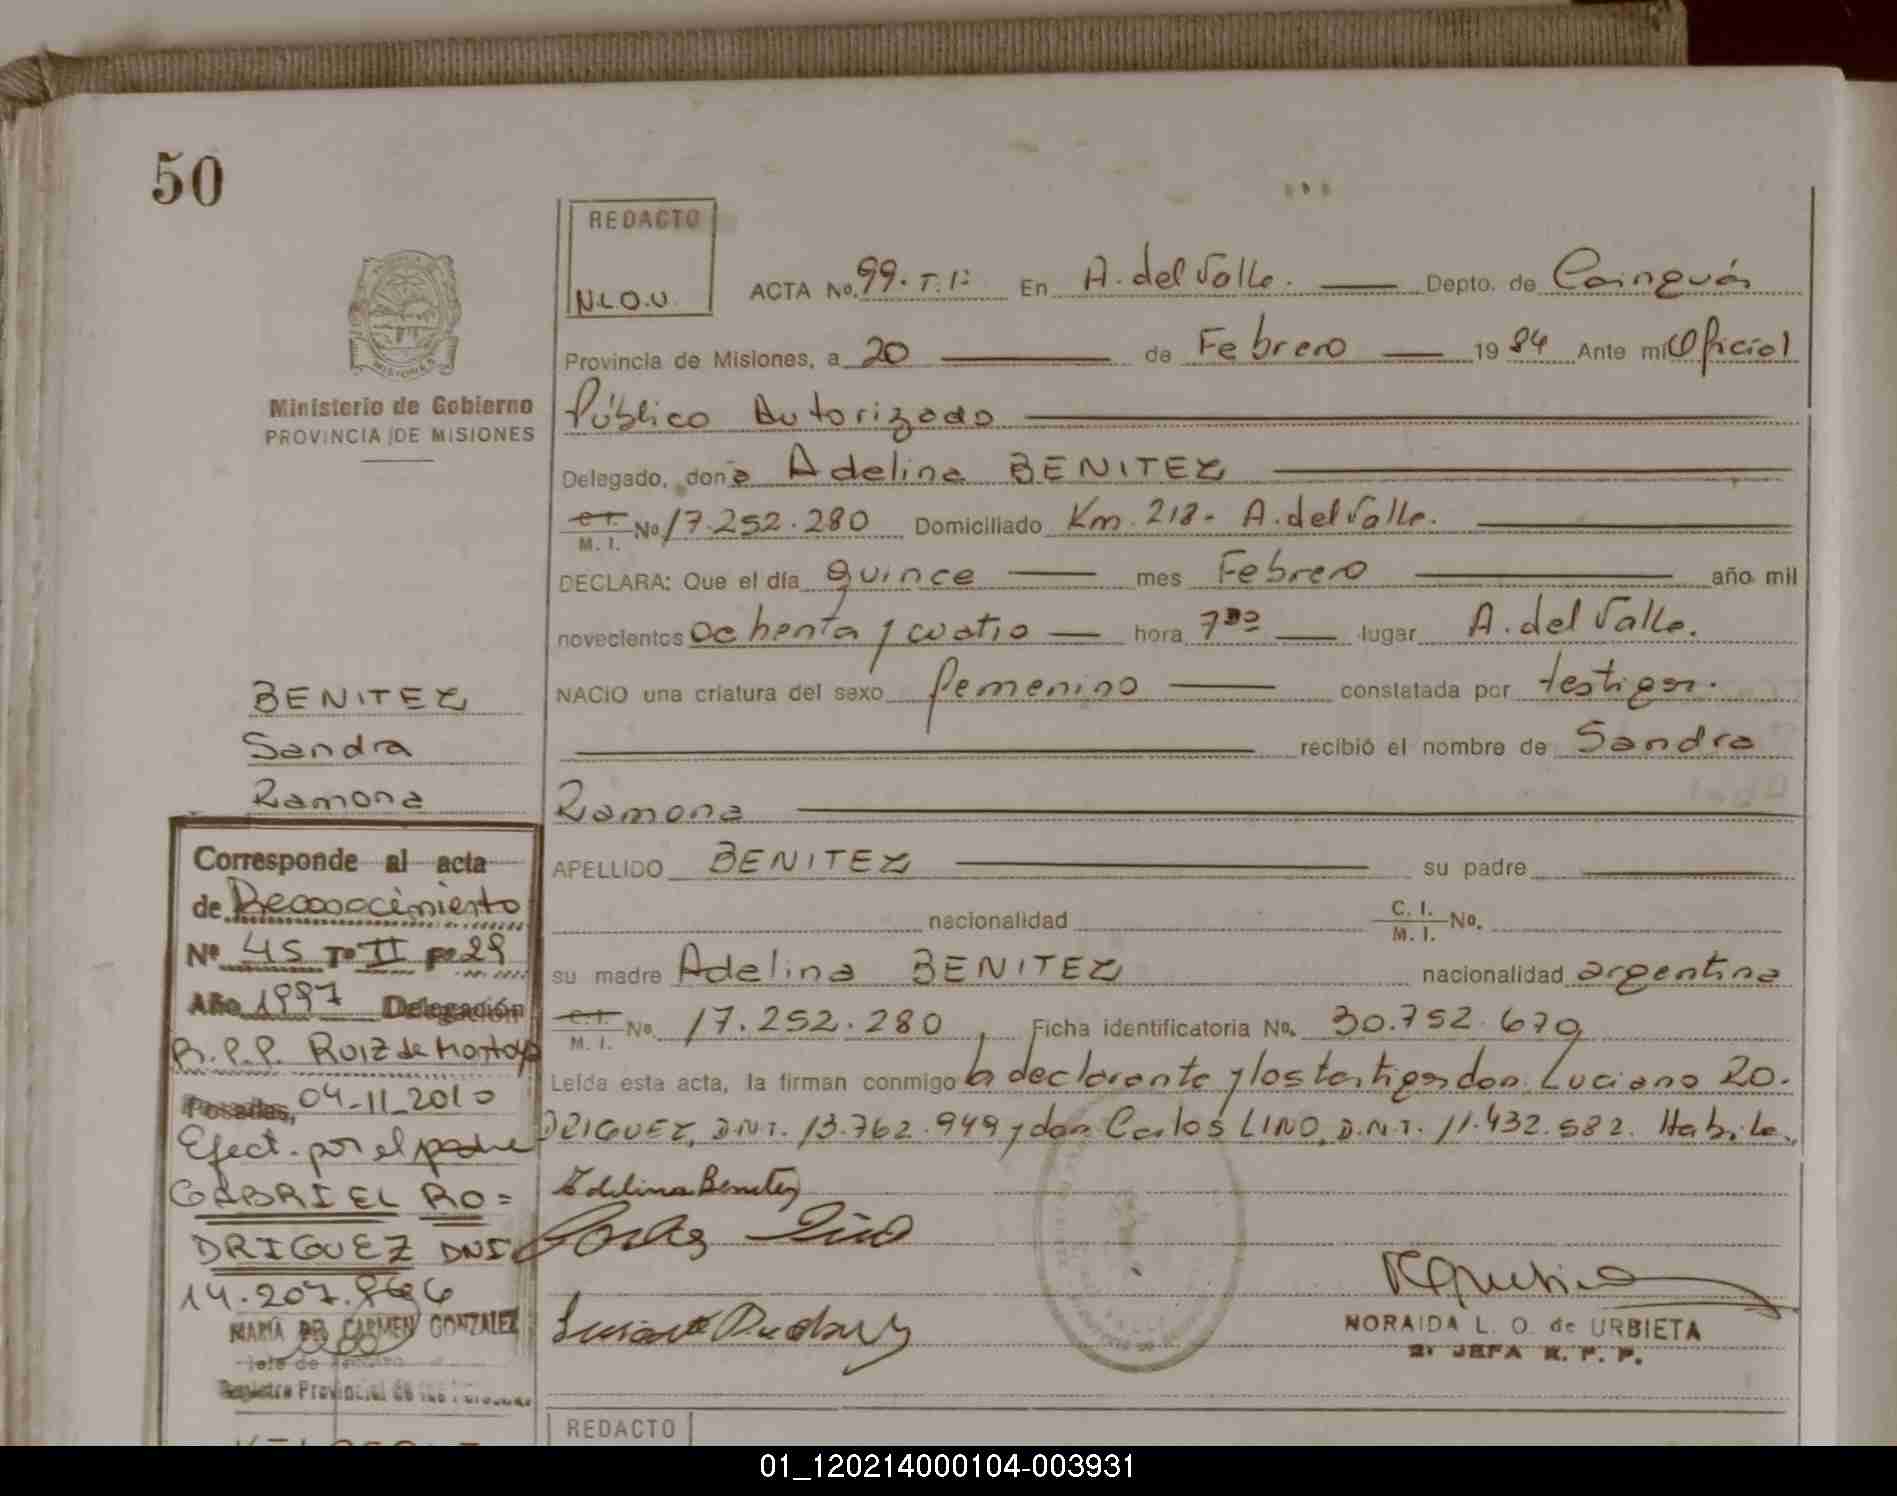 50
REDACTO
N.L.O.U.
ACTA No. 99. T. 1º En A. del Valle. Depto. de Cainguás
Provincia de Misiones, a 20 de Febrero 19 84 Ante mí Oficial
Público Autorizado
Ministerio de Gobierno
PROVINCIA DE MISIONES
MISIONES
Delegado, don a Adelina BENITEZ
C. I. M. I. No. 17.252.280 Domiciliado Km. 218- A. del Valle.
DECLARA: Que el día quince mes Febrero año mil
novecientos ochenta y cuatro hora 7 30 lugar A. del Valle.
NACIO una criatura del sexo femenino constatada por testigos.
recibió el nombre de Sandra
Ramona
APELLIDO BENITEZ su padre
nacionalidad C. I. M. I. No.
su madre Adelina BENITEZ nacionalidad argentina
C. I. M. I. No. 17.252.280, Ficha identificatoria No. 30.752.679
Leída esta acta, la firman conmigo la declarante y los testigos don: Luciano RO-
DRIGUEZ, D.N.I. 13.762.949 y don Carlos LINO, D.N.I. 11.432.582. Habile.
Adelina Benitez
Carlos Lino
NORAIDA L. O. de URBIETA
2º JEFA R. P. P.
BENITEZ
Sandra
Ramona
Corresponde al acta
de Reconocimiento
Nº 45 Tº II Fº 29
Año 1997 Delegación
R.P.P. Ruiz de Montoya
Posadas, 04-11-2010
Efect. por el padre
GABRIEL RO=
DRIGUEZ DNI
14.207.866
MARIA DEL CARMEN GONZALEZ
Jefe de
Registro Provincial de las Personas
REDACTO
01_120214000104-003931